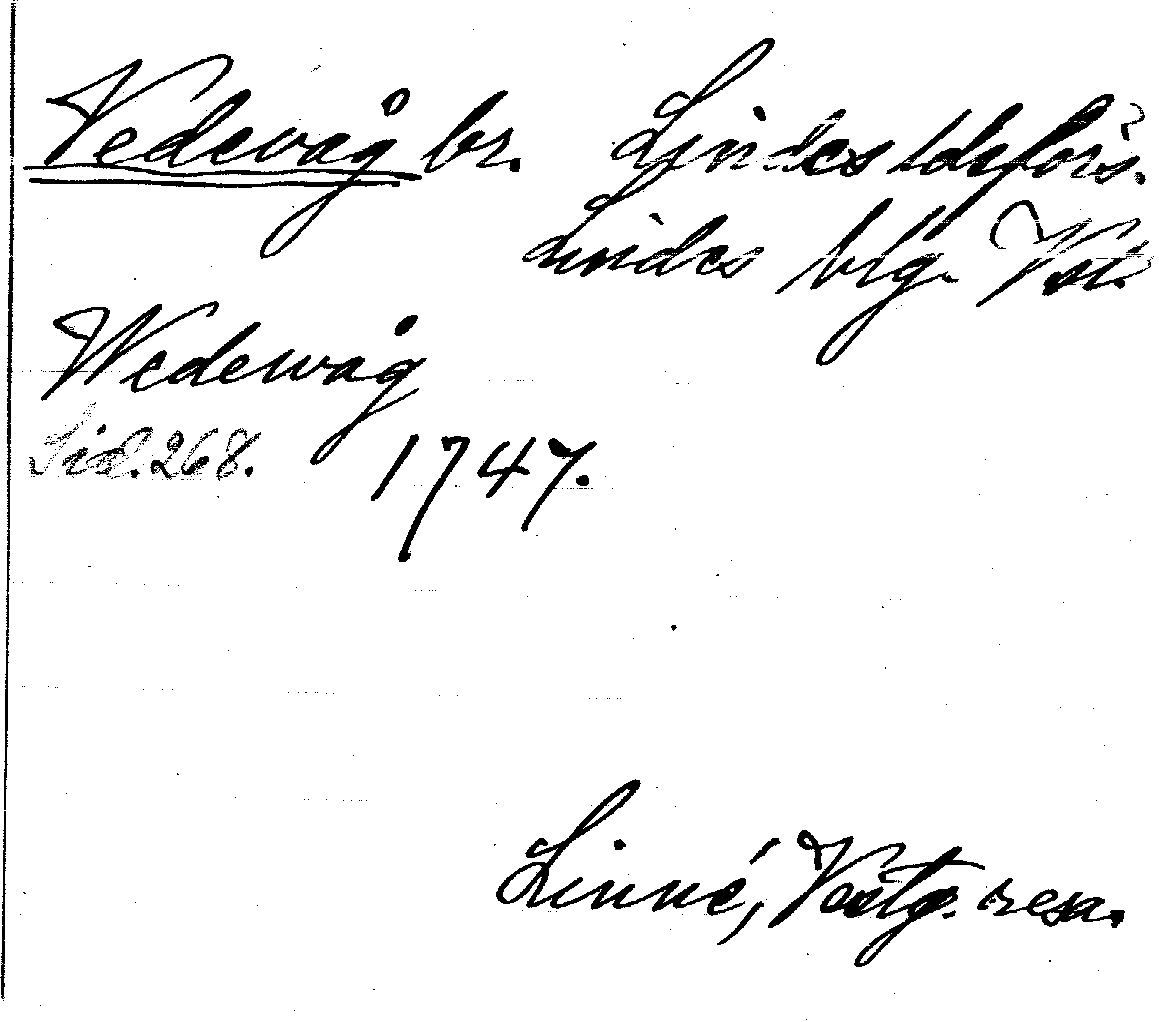 Vedevåg br. Lindes ldsförs.
Lindes blg. Vst.
Wedewåg
Sid. 268. 1747.
Linné, Vestg. resa.